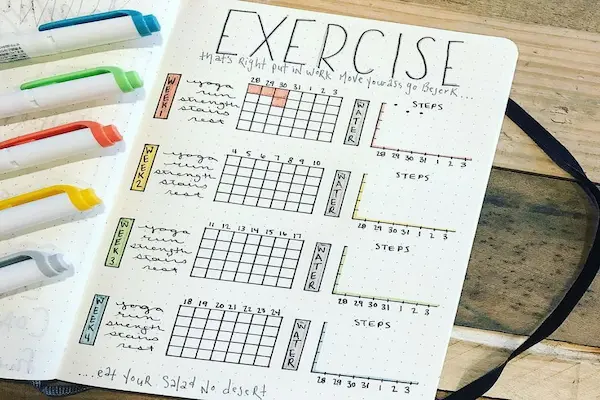 EXERCISE
that's right put in work move your ass go berserk...
WEEK 1
yoga
run
strength
stairs
rest
28 29 30 31 1 2 3
WATER
STEPS
28 29 30 31 1 2 3
WEEK 2
yoga
run
strength
stairs
rest
4 5 6 7 8 9 10
WATER
STEPS
28 29 30 31 1 2 3
WEEK 3
yoga
run
strength
stairs
rest
11 12 13 14 15 16 17
WATER
STEPS
28 29 30 31 1 2 3
WEEK 4
yoga
run
strength
stairs
rest
18 19 20 21 22 23 24
WATER
STEPS
28 29 30 31 1 2 3
...eat your salad No desert